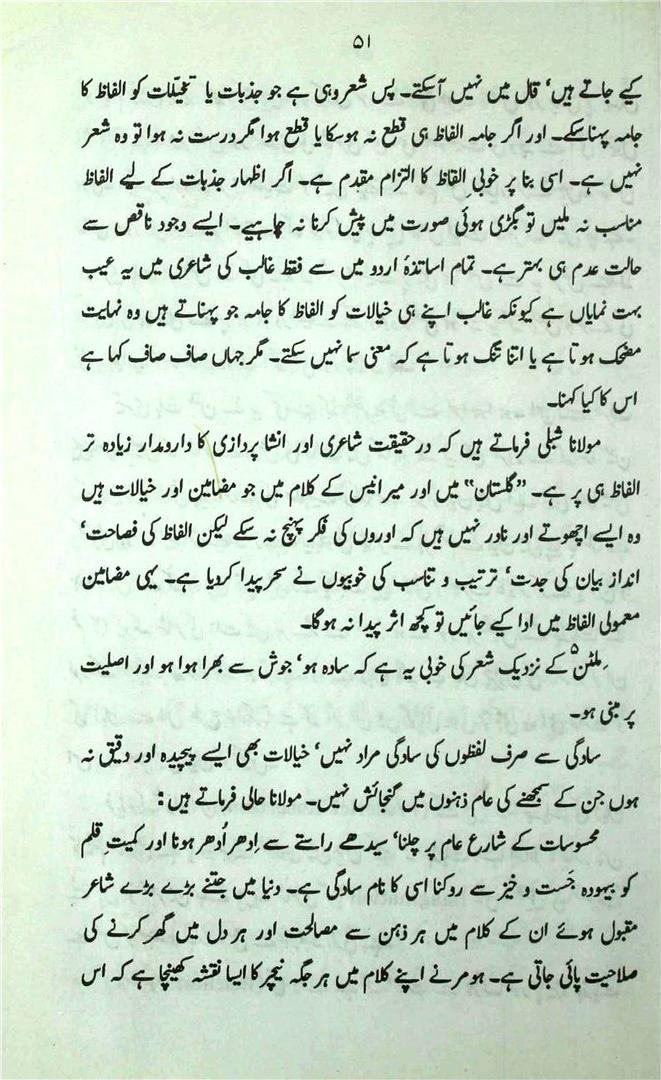 ۵۱
کیے جاتے ہیں‘ قال میں نہیں آسکتے۔ پس شعر وہی ہے جو جذبات یا تخیّلات کو الفاظ کا
جامہ پہنا سکے۔ اور اگر جامہ الفاظ ہی قطع نہ ہوسکا یا قطع ہوا مگر درست نہ ہوا تو وہ شعر
نہیں ہے۔ اسی بنا پر خوبیِ الفاظ کا التزام مقدم ہے۔ اگر اظہار جذبات کے لیے الفاظ
مناسب نہ ملیں تو بگڑی ہوئی صورت میں پیش کرنا نہ چاہیے۔ ایسے وجود ناقص سے
حالت عدم ہی بہتر ہے۔ تمام اساتذۂ اردو میں سے فقط غالب کی شاعری میں یہ عیب
بہت نمایاں ہے کیونکہ غالب اپنے ہی خیالات کو الفاظ کا جامہ جو پہناتے ہیں وہ نہایت
مضحک ہوتا ہے یا اتنا تنگ ہوتا ہے کہ معنی سما نہیں سکتے۔ مگر جہاں صاف صاف کہا ہے
اس کا کیا کہنا۔
مولانا شبلی فرماتے ہیں کہ درحقیقت شاعری اور انشا پردازی کا دارومدار زیادہ تر
الفاظ ہی پر ہے۔ ”گلستان“ میں اور میر انیس کے کلام میں جو مضامین اور خیالات ہیں
وہ ایسے اچھوتے اور نادر نہیں ہیں کہ اوروں کی فکر پہنچ نہ سکے لیکن الفاظ کی فصاحت‘
انداز بیان کی جدت‘ ترتیب و تناسب کی خوبیوں نے سحر پیدا کردیا ہے۔ یہی مضامین
معمولی الفاظ میں ادا کیے جائیں تو کچھ اثر پیدا نہ ہوگا۔
مِلٹن۵ کے نزدیک شعر کی خوبی یہ ہے کہ سادہ ہو‘ جوش سے بھرا ہوا ہو اور اصلیت
پر مبنی ہو۔
سادگی سے صرف لفظوں کی سادگی مراد نہیں‘ خیالات بھی ایسے پیچیدہ اور دقیق نہ
ہوں جن کے سمجھنے کی عام ذہنوں میں گنجائش نہیں۔ مولانا حالی فرماتے ہیں:
محسوسات کے شارع عام پر چلنا‘ سیدھے راستے سے اِدھر اُدھر ہونا اور کمیت قلم
کو بیہودہ جَست و خیز سے روکنا اسی کا نام سادگی ہے۔ دنیا میں جتنے بڑے بڑے شاعر
مقبول ہوئے ان کے کلام میں ہر ذہن سے مصالحت اور ہر دل میں گھر کرنے کی
صلاحیت پائی جاتی ہے۔ ہومر نے اپنے کلام میں ہر جگہ نیچر کا ایسا نقشہ کھینچا ہے کہ اس